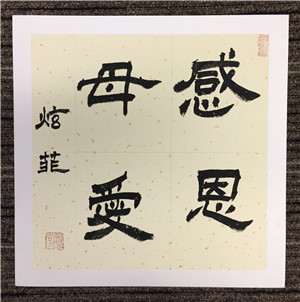 感恩
母愛
炫菲